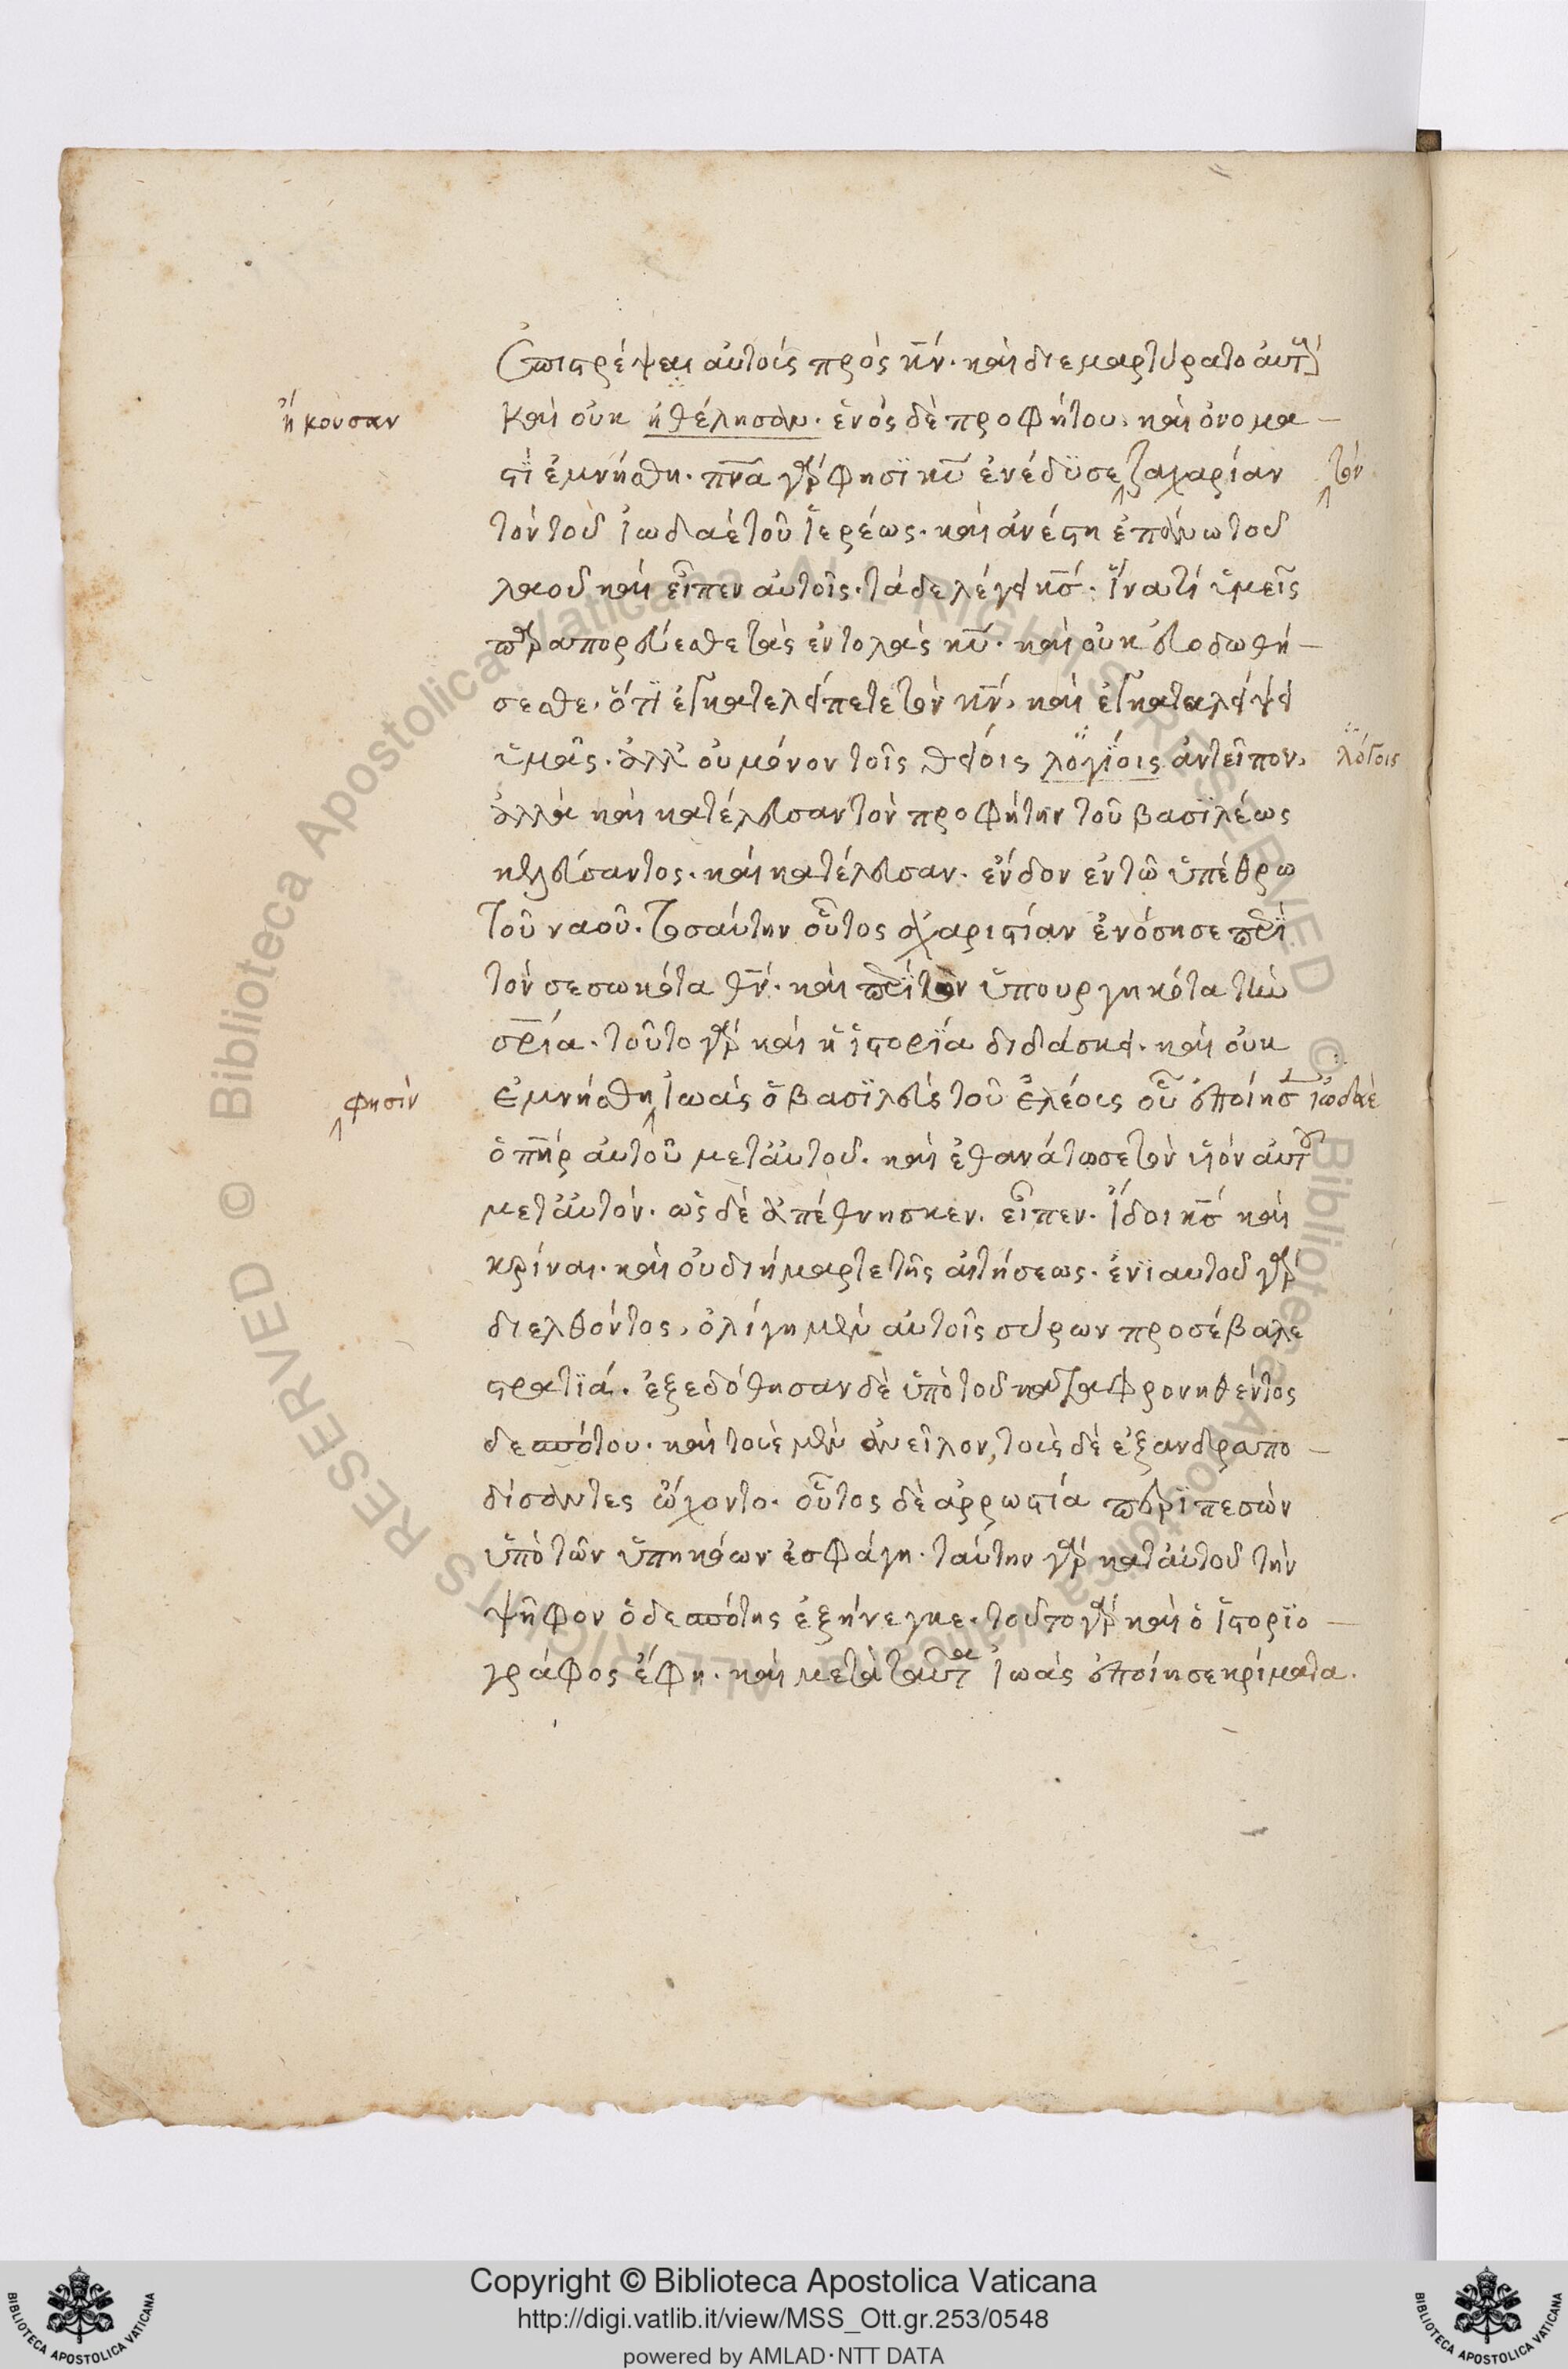 ἐπιστρέψαι αὐτοὺς πρὸς κ̅ν̅. καὶ διεμαρτύρατο αὐτοῖς
ἤκουσαν
καὶ οὐκ ἠθέλησαν. ἑνὸς δὲ προφήτου. καὶ ὀνομα-
στὶ ἐμνήσθη. π̅ν̅α̅ γάρ φησϊ κ̅υ̅ ἐνέδϋσε ζαχαρίαν
τὸν
τὸν τοῦ ἰωδαὲ τοῦ ἱερέως. καὶ ἀνέστη ἐπάνω τοῦ
λαοῦ καὶ εἶπεν αὐτοῖς. τάδε λέγει κ̅ς̅. ἵνα τί ὑμεῖς
παραπορεύεσθε τὰς ἐντολὰς κ̅υ̅. καὶ οὐκ εὐοδωθή-
σεσθε. ὅτϊ ἐγκατελείπετε τὸν κ̅ν̅, καὶ ἐγκαταλείψει
ὑμᾶς. ἀλλ' οὐ μόνον τοῖς θείοις λογίοις ἀντεῖπον,
λόγοις
ἀλλὰ καὶ κατέλευσαν τὸν προφήτην τοῦ βασιλέως
κελεύσαντος. καὶ κατέλευσαν. ἔνδον ἐν τῶ ὑπέθρω
τοῦ ναοῦ. τοσαύτην οὗτος ἀχαριστίαν ἐνόσησε περὶ
τὸν σεσωκότα θ̅ν̅. καὶ περὶ τὸν ὑπουργηκότα τῆ
σ̅ρ̅ία. τοῦτο γὰρ καὶ ἡ ἱστορΐα διδάσκει. καὶ οὐκ
φησὶν
ἐμνήσθη ἰωὰς ὁ βασιλεὺς τοῦ ἐλέους οὗ ἐποίησεν ἰωδαὲ
ὁ π̅η̅ρ αὐτοῦ μετ' αὐτοῦ. καὶ ἐθανάτωσε τὸν υἱὸν αὐτοῦ
μετ' αὐτόν. ὡς δὲ ἀπέθνησκεν. εἶπεν. ἴδοι κ̅ς̅ καὶ
κρίναι. καὶ οὐ διήμαρτε τῆς αἰτήσεως. ἐνϊαυτοῦ γὰρ
διελθόντος, ὀλίγη μὲν αὐτοῖς σύρων προσέβαλε
στρατϊά. ἐξεδόθησαν δὲ ὑπὸ τοῦ καταφρονηθέντος
δεσπότου. καὶ τοὺς μὲν ἀνεῖλον, τοὺς δὲ ἐξανδραπο-
δίσαντες ὤχοντο. οὗτος δὲ ἀρρωστία περϊπεσὼν
ὑπὸ τῶν ὑπηκόων ἐσφάγη. ταύτην γὰρ κατ' αὐτοῦ τὴν
ψῆφον ὁ δεσπότης ἐξήνεγκε. τοῦτο γὰρ καὶ ὁ ἱστορϊο-
γράφος ἔφη. καὶ μετὰ ταῦτα ἰωὰς ἐποίησε κρίματα.
Copyright © Biblioteca Apostolica Vaticana
http://digi.vatlib.it/view/MSS_Ott.gr.253/0548
powered by AMLAD·NTT DATA